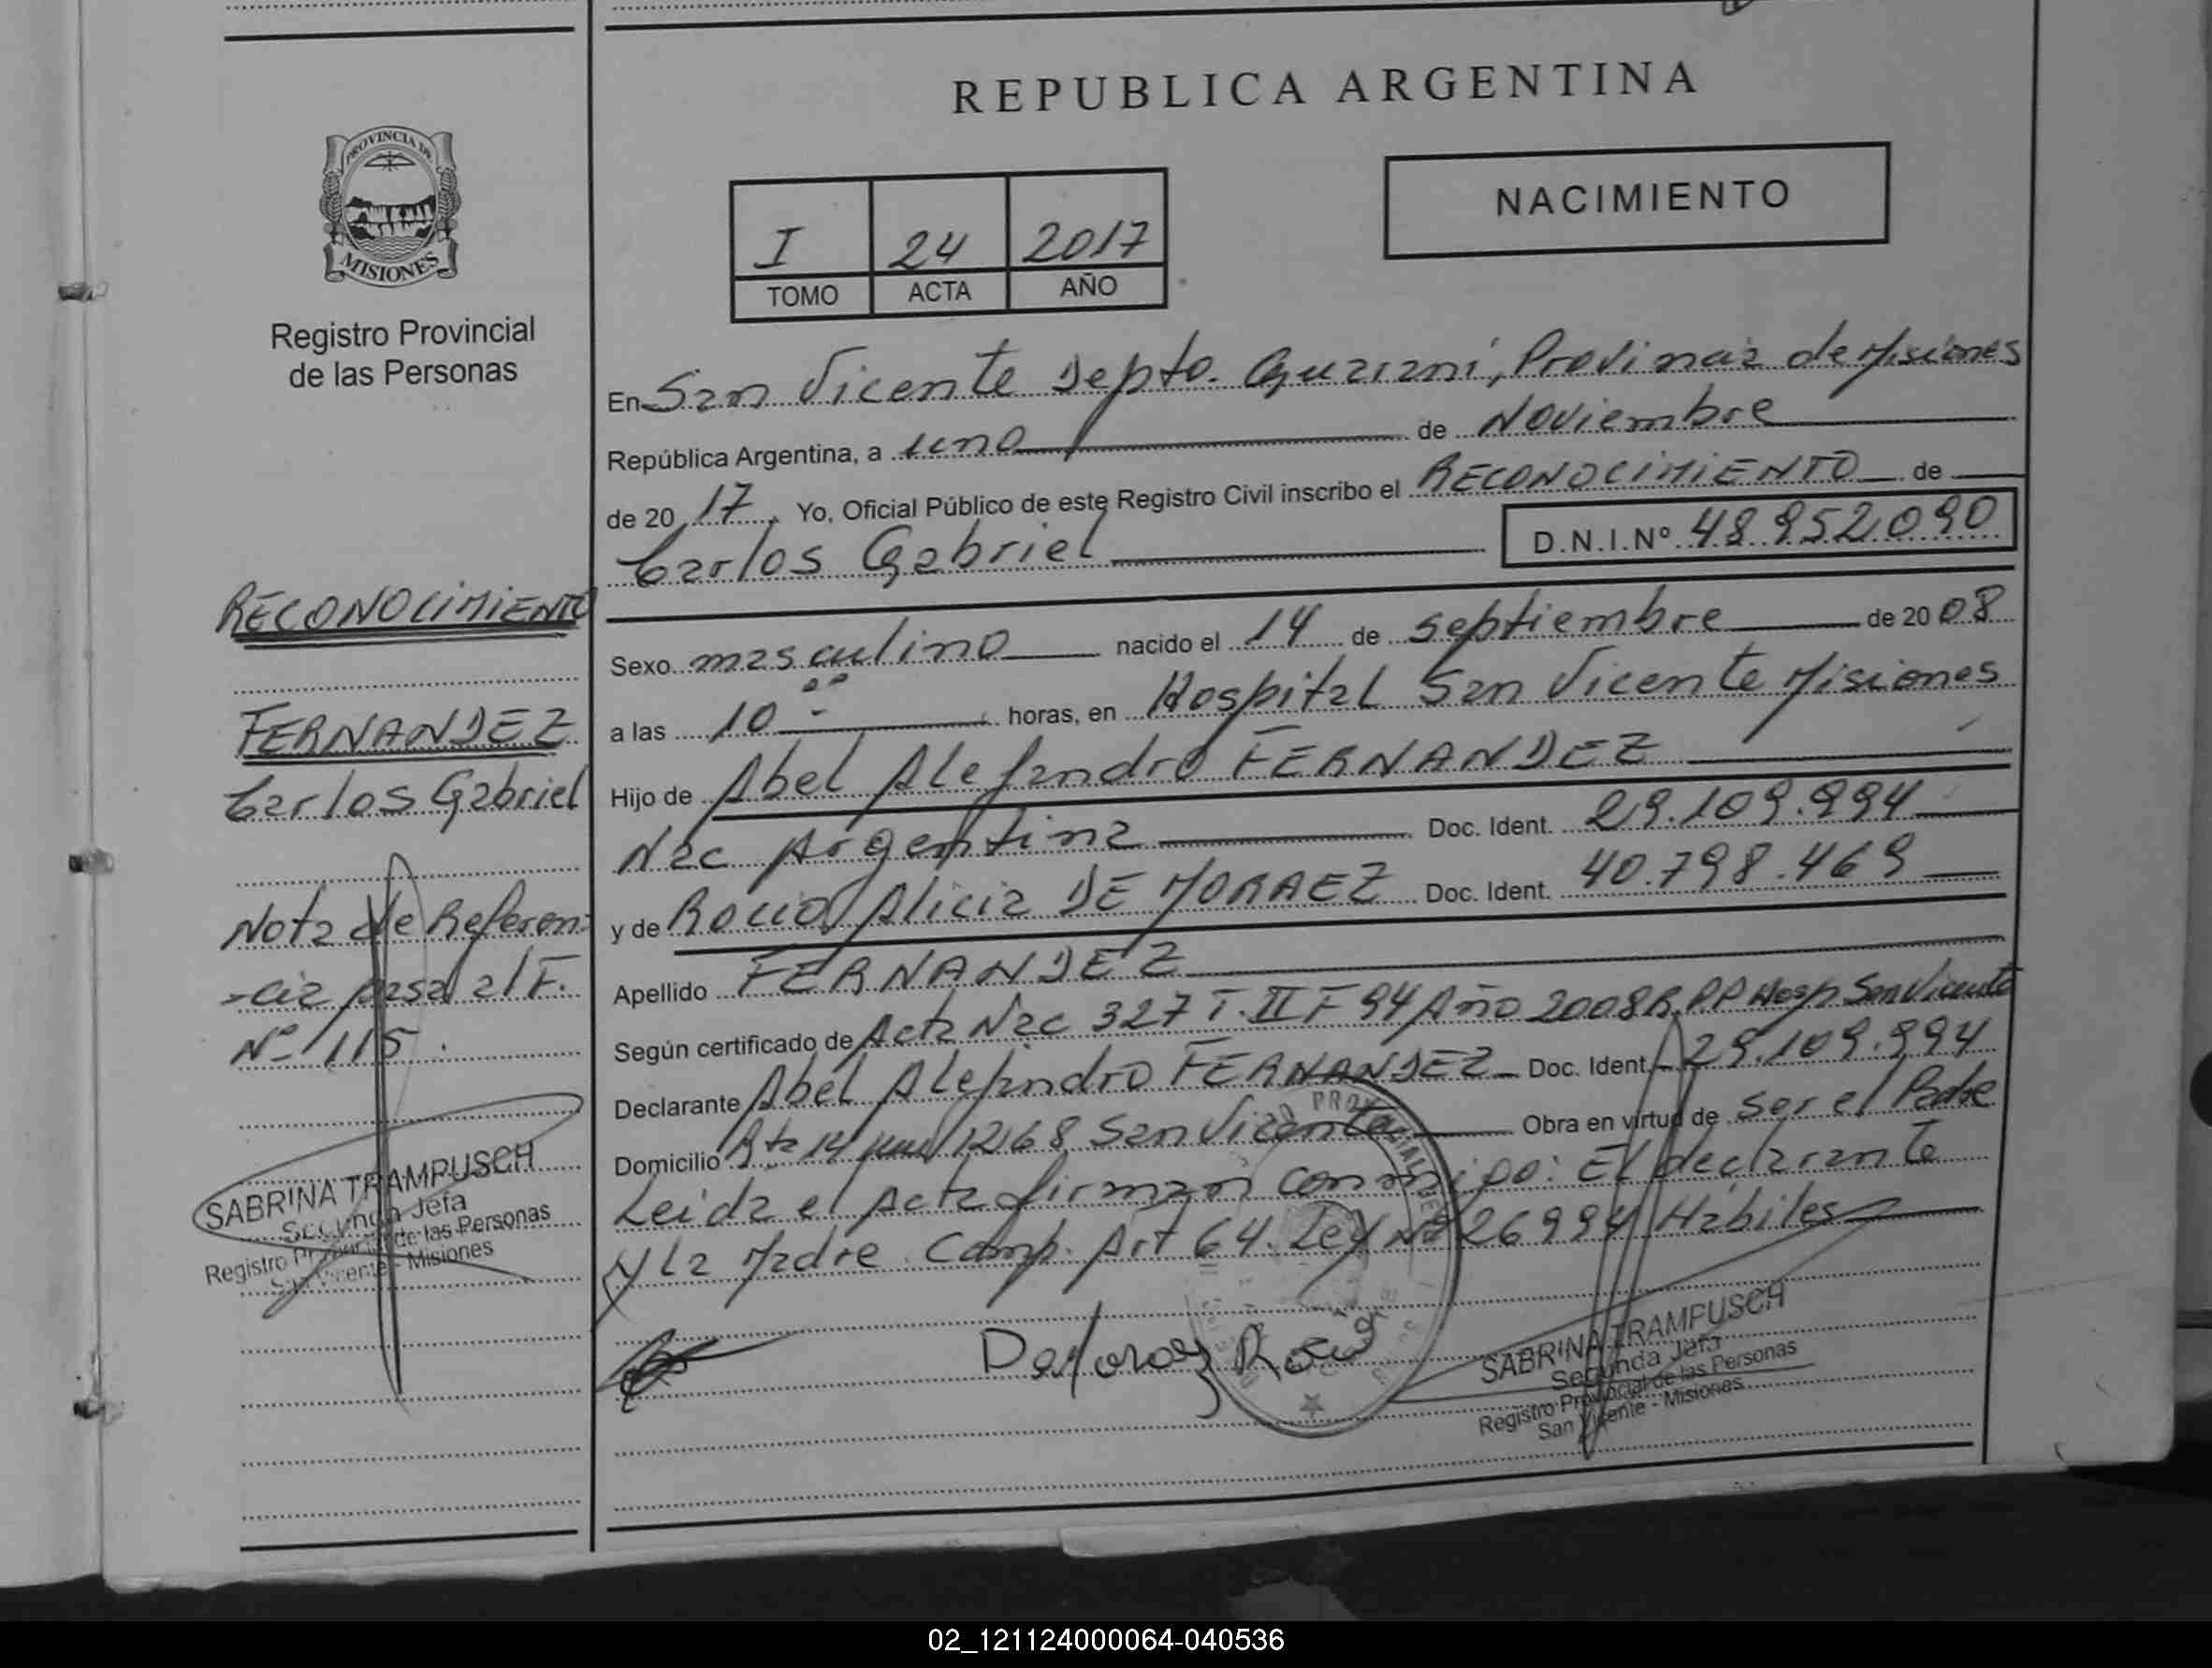 REPUBLICA ARGENTINA
PROVINCIA DE
MISIONES
Registro Provincial
de las Personas
I 24 2017
TOMO ACTA AÑO
NACIMIENTO
En San Vicente Depto. Guarani, Provincia de Misiones
República Argentina, a uno de Noviembre
de 20 17. Yo, Oficial Público de este Registro Civil inscribo el RECONOCIMIENTO de
Carlos Gabriel D.N.I.Nº 48.952.090
Sexo masculino nacido el 14 de septiembre de 20 08
a las 10 horas, en Hospital San Vicente Misiones
Hijo de Abel Alejandro FERNANDEZ
Nac Argentina Doc. Ident. 29.109.994
y de Rocio Alicia DE MORAEZ Doc. Ident. 40.798.469
Apellido FERNANDEZ
Según certificado de Acta Nac 327 T. II F 94 Año 2008 R.P.P Hosp San Vicente
Declarante Abel Alejandro FERNANDEZ Doc. Ident. 29.109.994
Domicilio Rta 14 km 1268 San Vicente Obra en virtud de ser el Padre
Leida el Acta firman conmigo: El declarante
y La Madre. Comp. Art 64. Ley Nº 26994 Hábiles
RECONOCIMIENTO
FERNANDEZ
Carlos Gabriel
Nota de Referen-
-cia pasa al F.
Nº 115.
SABRINA TRAMPUSCH
Segunda Jefa
Registro Provincial de las Personas
San Vicente - Misiones
SABRINA TRAMPUSCH
Segunda Jefa
Registro Provincial de las Personas
San Vicente - Misiones
02_121124000064-040536